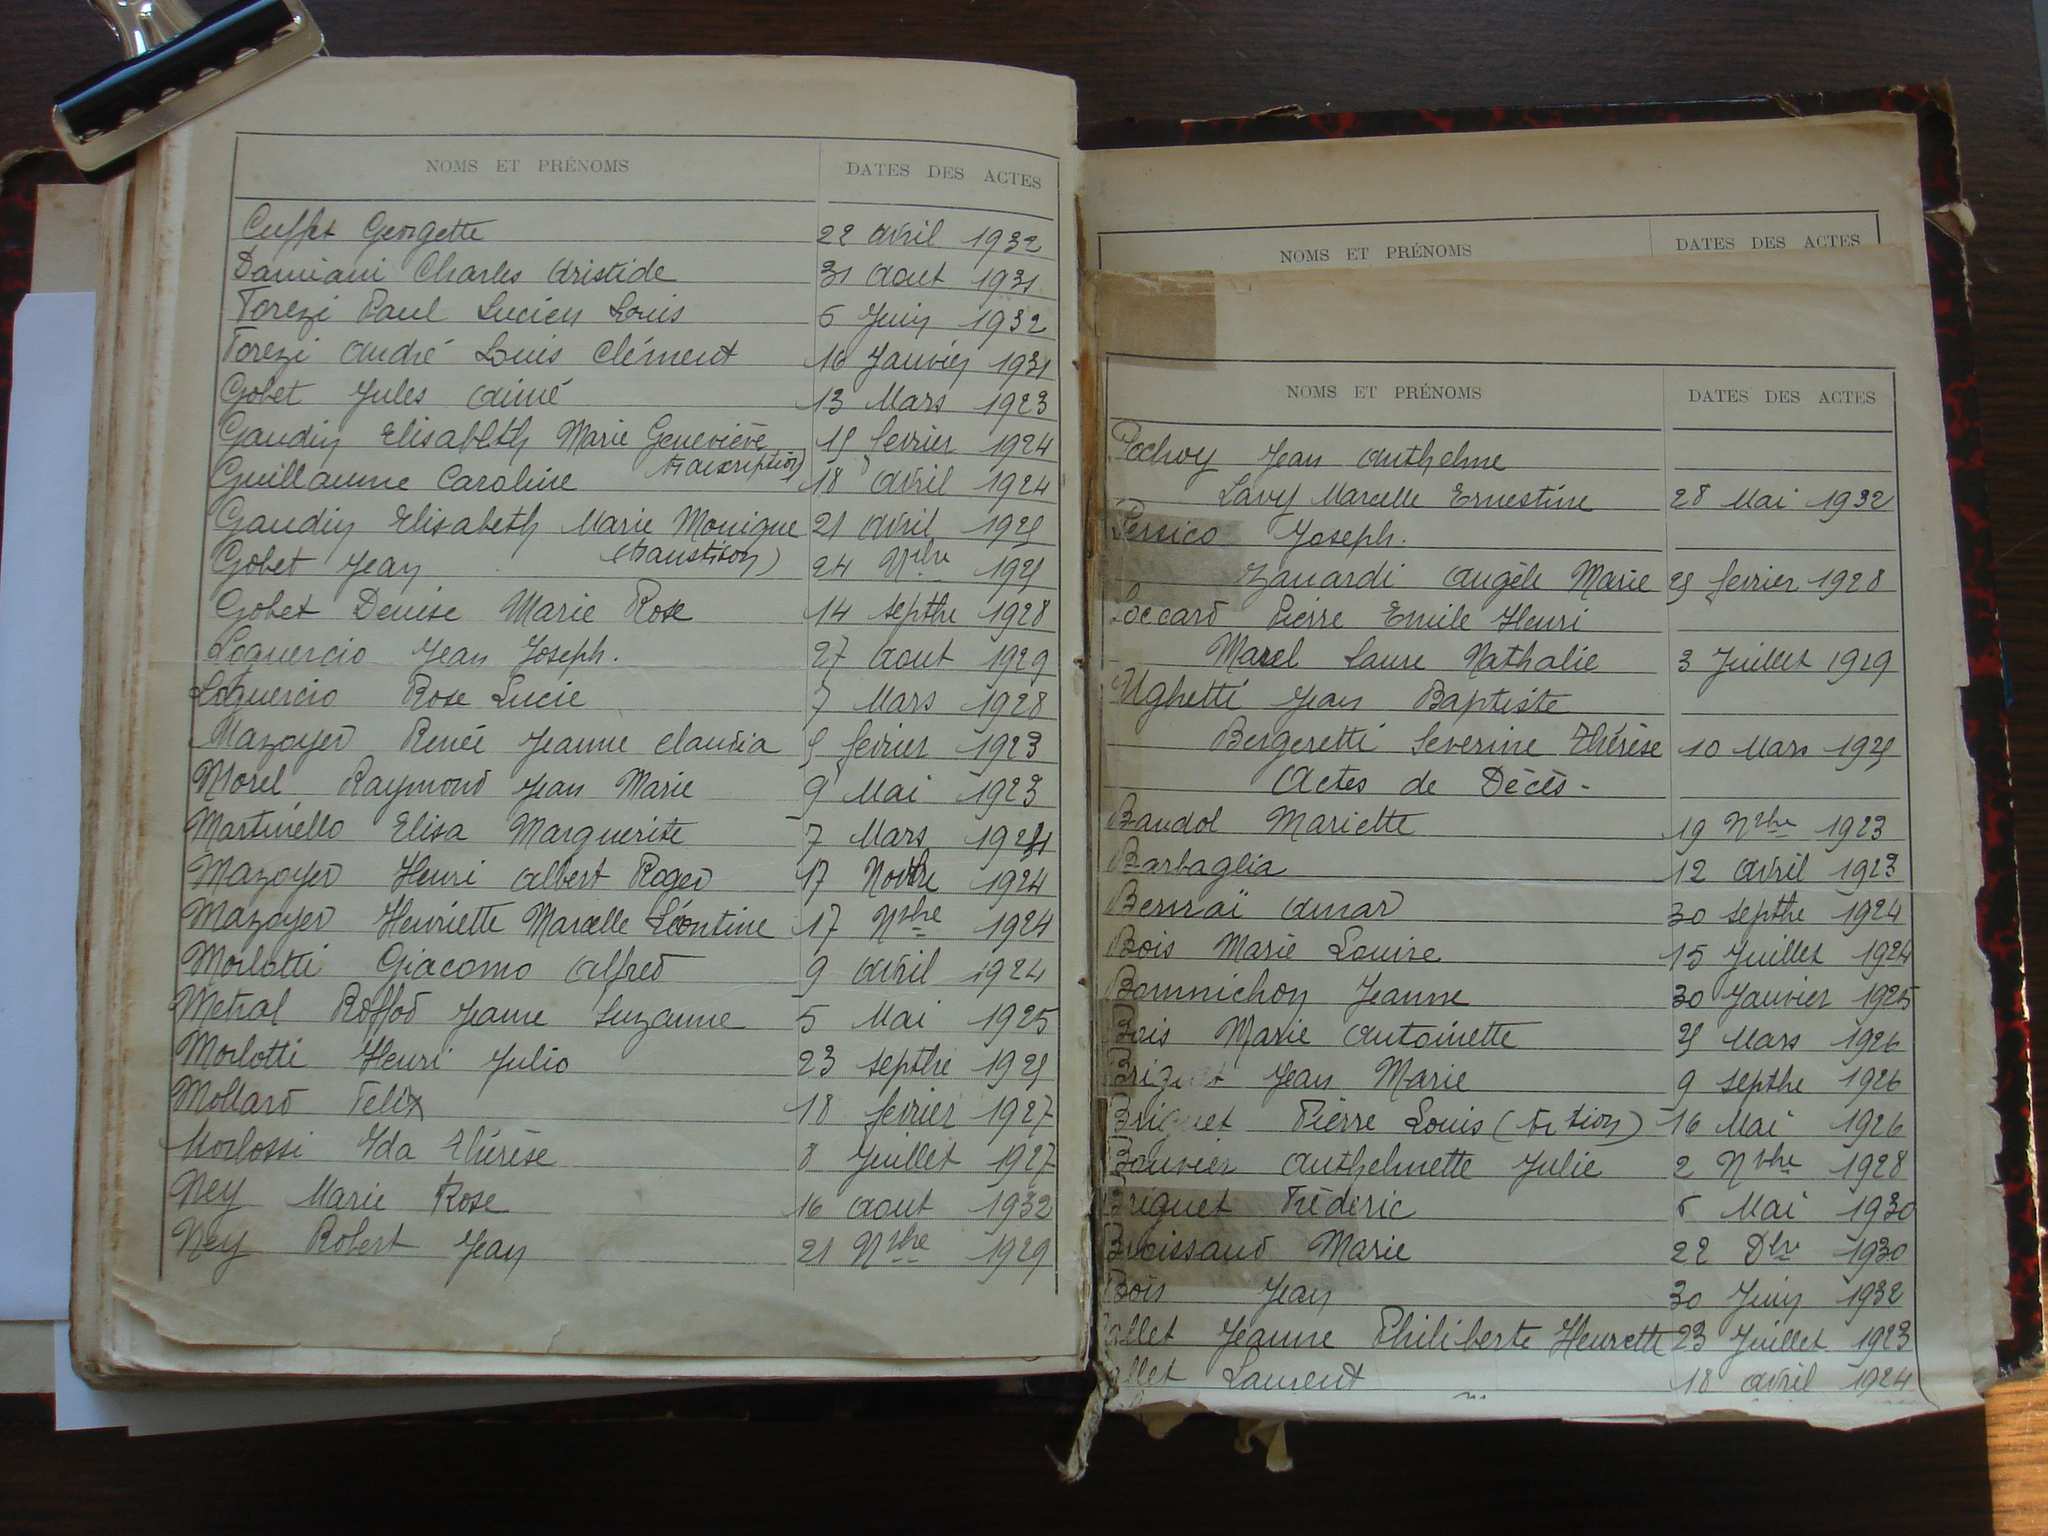 NOMS ET PRÉNOMS DATES DES ACTES
Cuffet Georgette 22 avril 1932
Damiani Charles Aristide 31 Aout 1931
Forezi Paul Lucien Louis 6 Juin 1932
Forezi André Louis Clément 16 Janvier 1931
Gobet Jules Aimé 13 Mars 1923
Gaudin Elisabeth Marie Geneviève 15 fevrier 1924
(transcription)
Guillaume Caroline 18 avril 1924
Gaudin Elisabeth Marie Monique 21 avril 1925
Gobet Jean 24 Nbre 1925
Gobet Denise Marie Rose 14 septbre 1928
Loquercio Jean Joseph. 27 aout 1929
Loquercio Rose Lucie 7 Mars 1928
Mazoyer Renée Jeanne Claudia 5 fevrier 1923
Morel Raymond Jean Marie 9 Mai 1923
Martinello Elisa Marguerite 7 Mars
Mazoyer Henri Albert Roger 17 Novbre 1924
Mazoyer Henriette Marcelle Léontine 17 Nbre 1924
Morlotti Giacomo Alfred 9 avril 1924
Métral Roffod Jeanne Suzanne 5 Mai 1925
Morlotti Henri Julio 23 septbre 1925
Mollard Felix 18 fevrier 1927
Morlossi Ida Thérèse 8 Juillet 1927
Ney Marie Rose 16 aout 1932
Ney Robert Jean 21 Nbre 1929
NOMS ET PRÉNOMS DATES DES ACTES
NOMS ET PRÉNOMS DATES DES ACTES
Pochoy Jean Anthelme
Lavy Marcelle Ernestine 28 Mai 1932
Persico Joseph.
Zanardi Angèle Marie 25 fevrier 1928
Soccard Pierre Emile Henri
Marel Laure Nathalie 3 Juillet 1929
Ughetti Jean Baptiste
Bergeretti Severine Thérèse 10 Mars 1925
Actes de Décès.
Baudol Mariette 19 Nbre 1923
Barbaglia 12 avril 1923
Bernaï Amar 30 septbre 1924
Bois Marie Louise 15 Juillet 1924
Bonnichon Jeanne 30 Janvier 1925
Bois Marie Antoinette 25 Mars 1926
Jean Marie 9 septbre 1926
Briquet Pierre Louis (tr tion) 16 Mai 1926
Bouvier Anthelmette Julie 2 Nbre 1928
Briquet Fréderic 6 Mai 1930
Broissand Marie 22 Dbre 1930
Bois Jean 30 Juin 1932
allet Jeanne Philiberte Henriette 23 Juillet 1923
allet Laurent 18 avril 1924